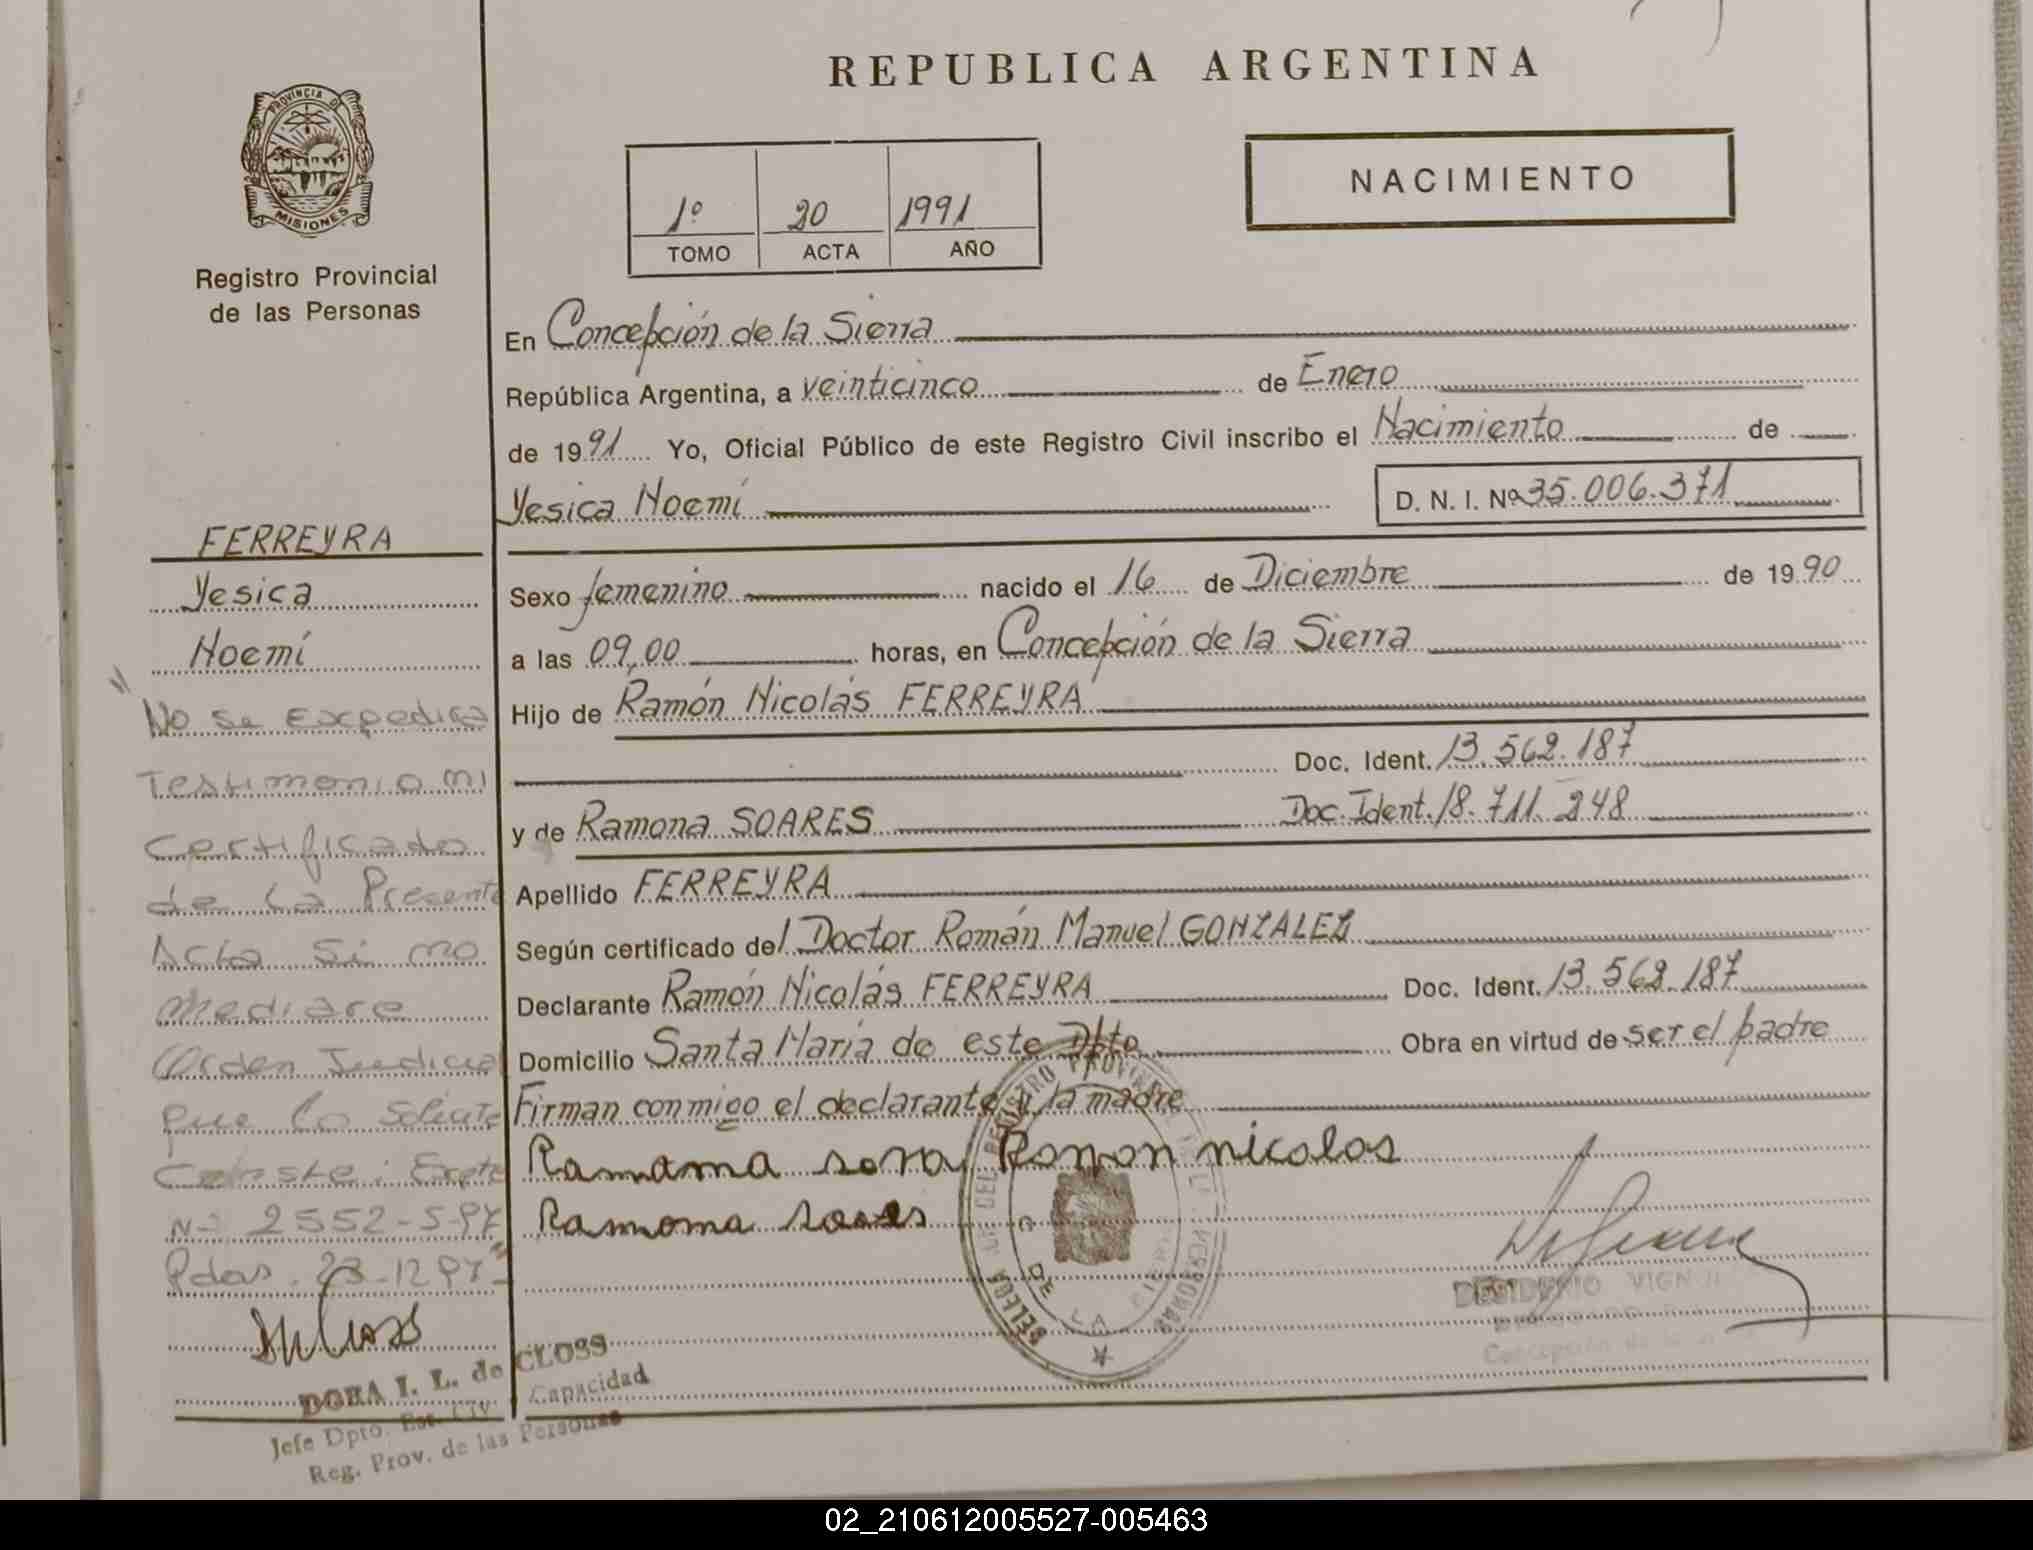 REPUBLICA ARGENTINA
PROVINCIA DE
MISIONES
Registro Provincial
de las Personas
1º 20 1991
TOMO ACTA AÑO
NACIMIENTO
En Concepción de la Sierra
República Argentina, a veinticinco de Enero
de 1991 Yo, Oficial Público de este Registro Civil inscribo el Nacimiento de
Yesica Noemí D. N. I. Nº 35.006.371
Sexo femenino nacido el 16 de Diciembre de 1990
a las 09,00 horas, en Concepción de la Sierra
Hijo de Ramón Nicolás FERREYRA
Doc. Ident. 13.562.187
y de Ramona SOARES Doc. Ident. 18.711.248
Apellido FERREYRA
Según certificado del Doctor Román Manuel GONZALEZ
Declarante Ramón Nicolás FERREYRA Doc. Ident. 13.562.187
Domicilio Santa María de este Dpto Obra en virtud de ser el padre
Firman conmigo el declarante y la madre
Ramon nicolas
FERREYRA
Yesica
Noemí
"No se expedira
Testimonio ni
Certificado
de la Presente
Acta si no
mediare
Orden Judicial
que lo solicite
Conste: Expte
Nº 2552-S-97"
Pdas. 23-12-97-
DORA I. L. de CLOSS
Jefe Dpto. Est. Civ. Capacidad
Reg. Prov. de las Personas
DESIDERIO
Concepción de la
DE LA
02_210612005527-005463